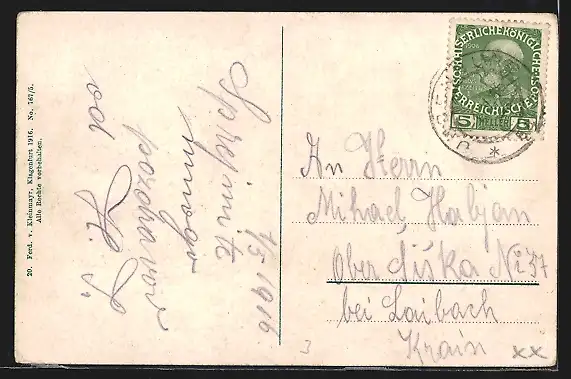 20. Ferd. v. Kleinmayr, Klagenfurt 1916. No. 767/5.
Alle Rechte vorbehalten.
1/5 1916.
Sprejmite
mnogo
pozdravov
od
H. J.
KAISERLICHEKÖNIGLICHE
1908
ÖSTERREICHISCHE
5 HELLER 5
An Herrn
Mihael Habjan
Ober Šiška No 57
bei Laibach
Krain
3
xx